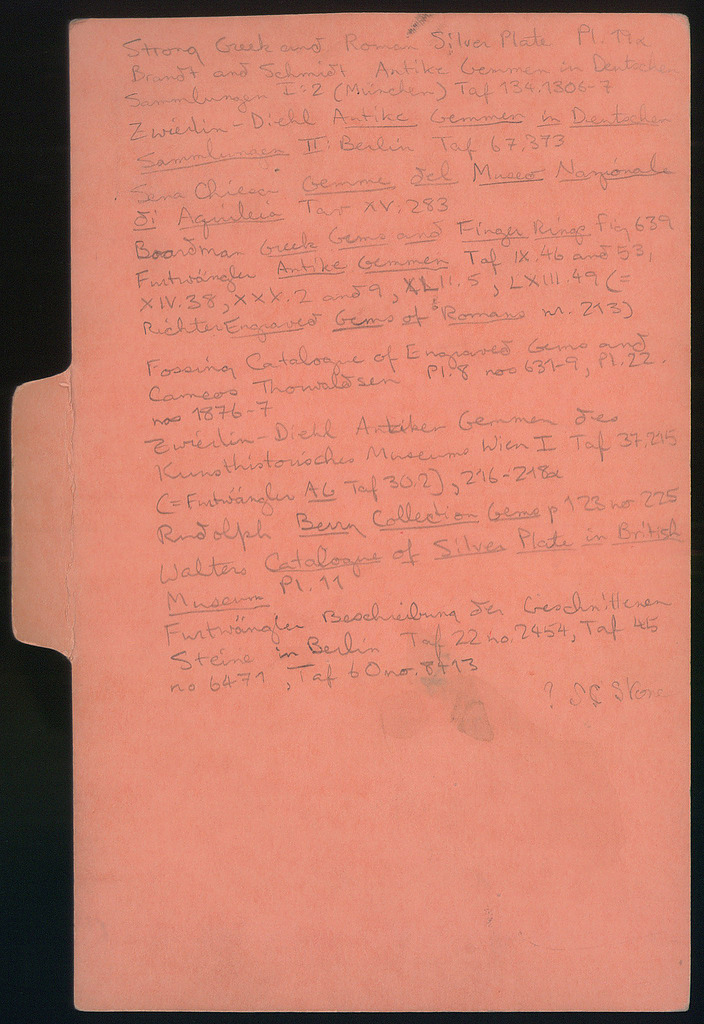 Strong Greek and Roman Silver Plate Pl. 19a
Brandt and Schmidt Antike Gemmen in Deutschen
Sammlungen I:2 (München) Taf 134.1306-7
Zwierlin-Diehl Antike Gemmen in Deutschen
Sammlungen II: Berlin Taf 67,373
Sena Chiesa Gemme del Museo Nazionale
di Aquileia Tav XV. 283
Boardman Greek Gems and Finger Rings, fig 639
Furtwängler Antike Gemmen Taf IX.46 and 53,
XIV.38, XXX.2 and 9, XLII.5, LXIII.49 (=
Richter Engraved Gems of Romans nr. 213)
Fossing Catalogue of Engraved Gems and
Cameos Thorwaldsen Pl.8 nos 631-9, Pl.22.
nos 1876-7
Zwierlin-Diehl Antiken Gemmen des
Kunsthistorisches Museums Wien I Taf 37,215
(= Furtwängler AG Taf 30.2), 216-218a
Rudolph Berry Collection Gems p. 123 no 225
Walters Catalogue of Silver Plate in British
Museum Pl. 11
Furtwängler Beschreibung der Geschnittenen
Steine in Berlin Taf 22 no. 2454, Taf 45
no 6471, Taf 60 no. 8413
?